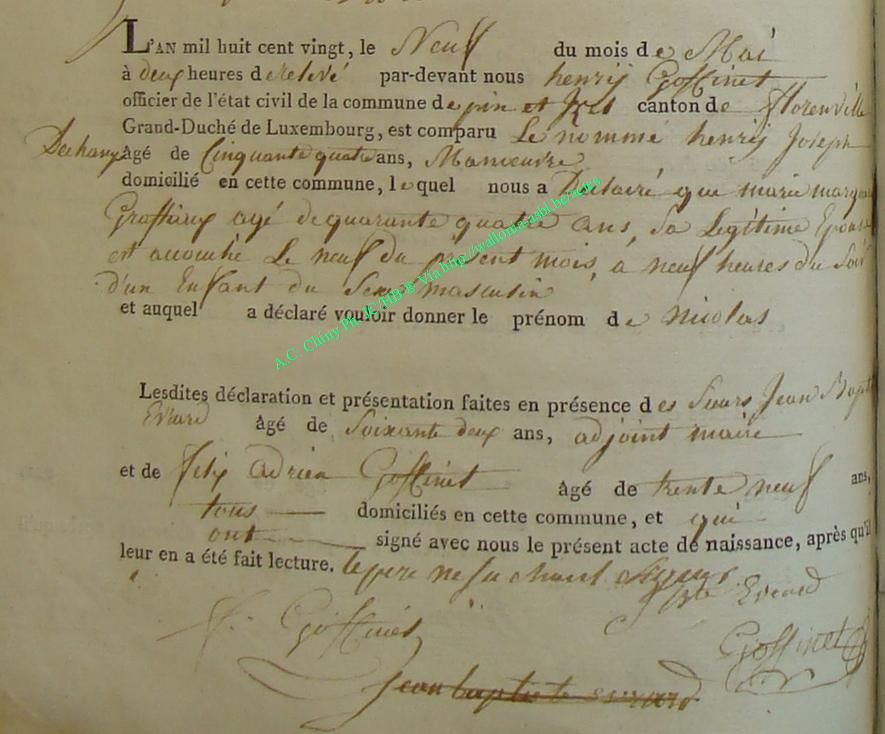 L'AN mil huit cent vingt, le Neuf du mois de Mai
à deux heures de relevé par-devant nous henrij Goffinet
officier de l'état civil de la commune de pin et Izel canton de florenville
Grand-Duché de Luxembourg, est comparu Le nommé henrij Joseph
âgé de Cinquante quatre ans, Manœuvre
domicilié en cette commune, lequel nous a Declaré que marie
agé de quarante quatre ans, Sa Legitime Epouse
est accouché Le neuf du présent mois, à neuf heures du Soir
d'un Enfant du Sexe masculin
et auquel a déclaré vouloir donner le prénom de nicolas
Lesdites déclaration et présentation faites en présence des Sieurs Jean Bapte
Evrard âgé de Soixante deux ans, adjoint maire
et de felix adrien Goffinet âgé de trente neuf ans,
tous domiciliés en cette commune, et qui
ont signé avec nous le présent acte de naissance, après qu'il
leur en a été fait lecture. le pere ne sachant Signer.
Bte Evrard
Goffinet
Goffinet
Jean baptiste evrard
A.C. Chiny Ph. JC HB © Via http://wallonia-asbl.be/actes